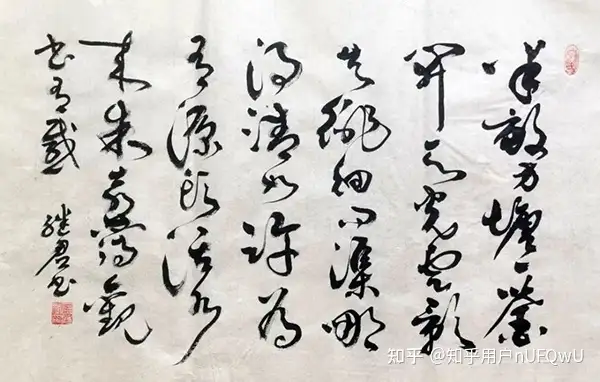 半畝方塘一鑒
開天光雲影
共徘徊問渠哪
得清如許為
有源頭活水
來朱熹觀
書有感 继君书
知乎 @知乎用户nUFQwU